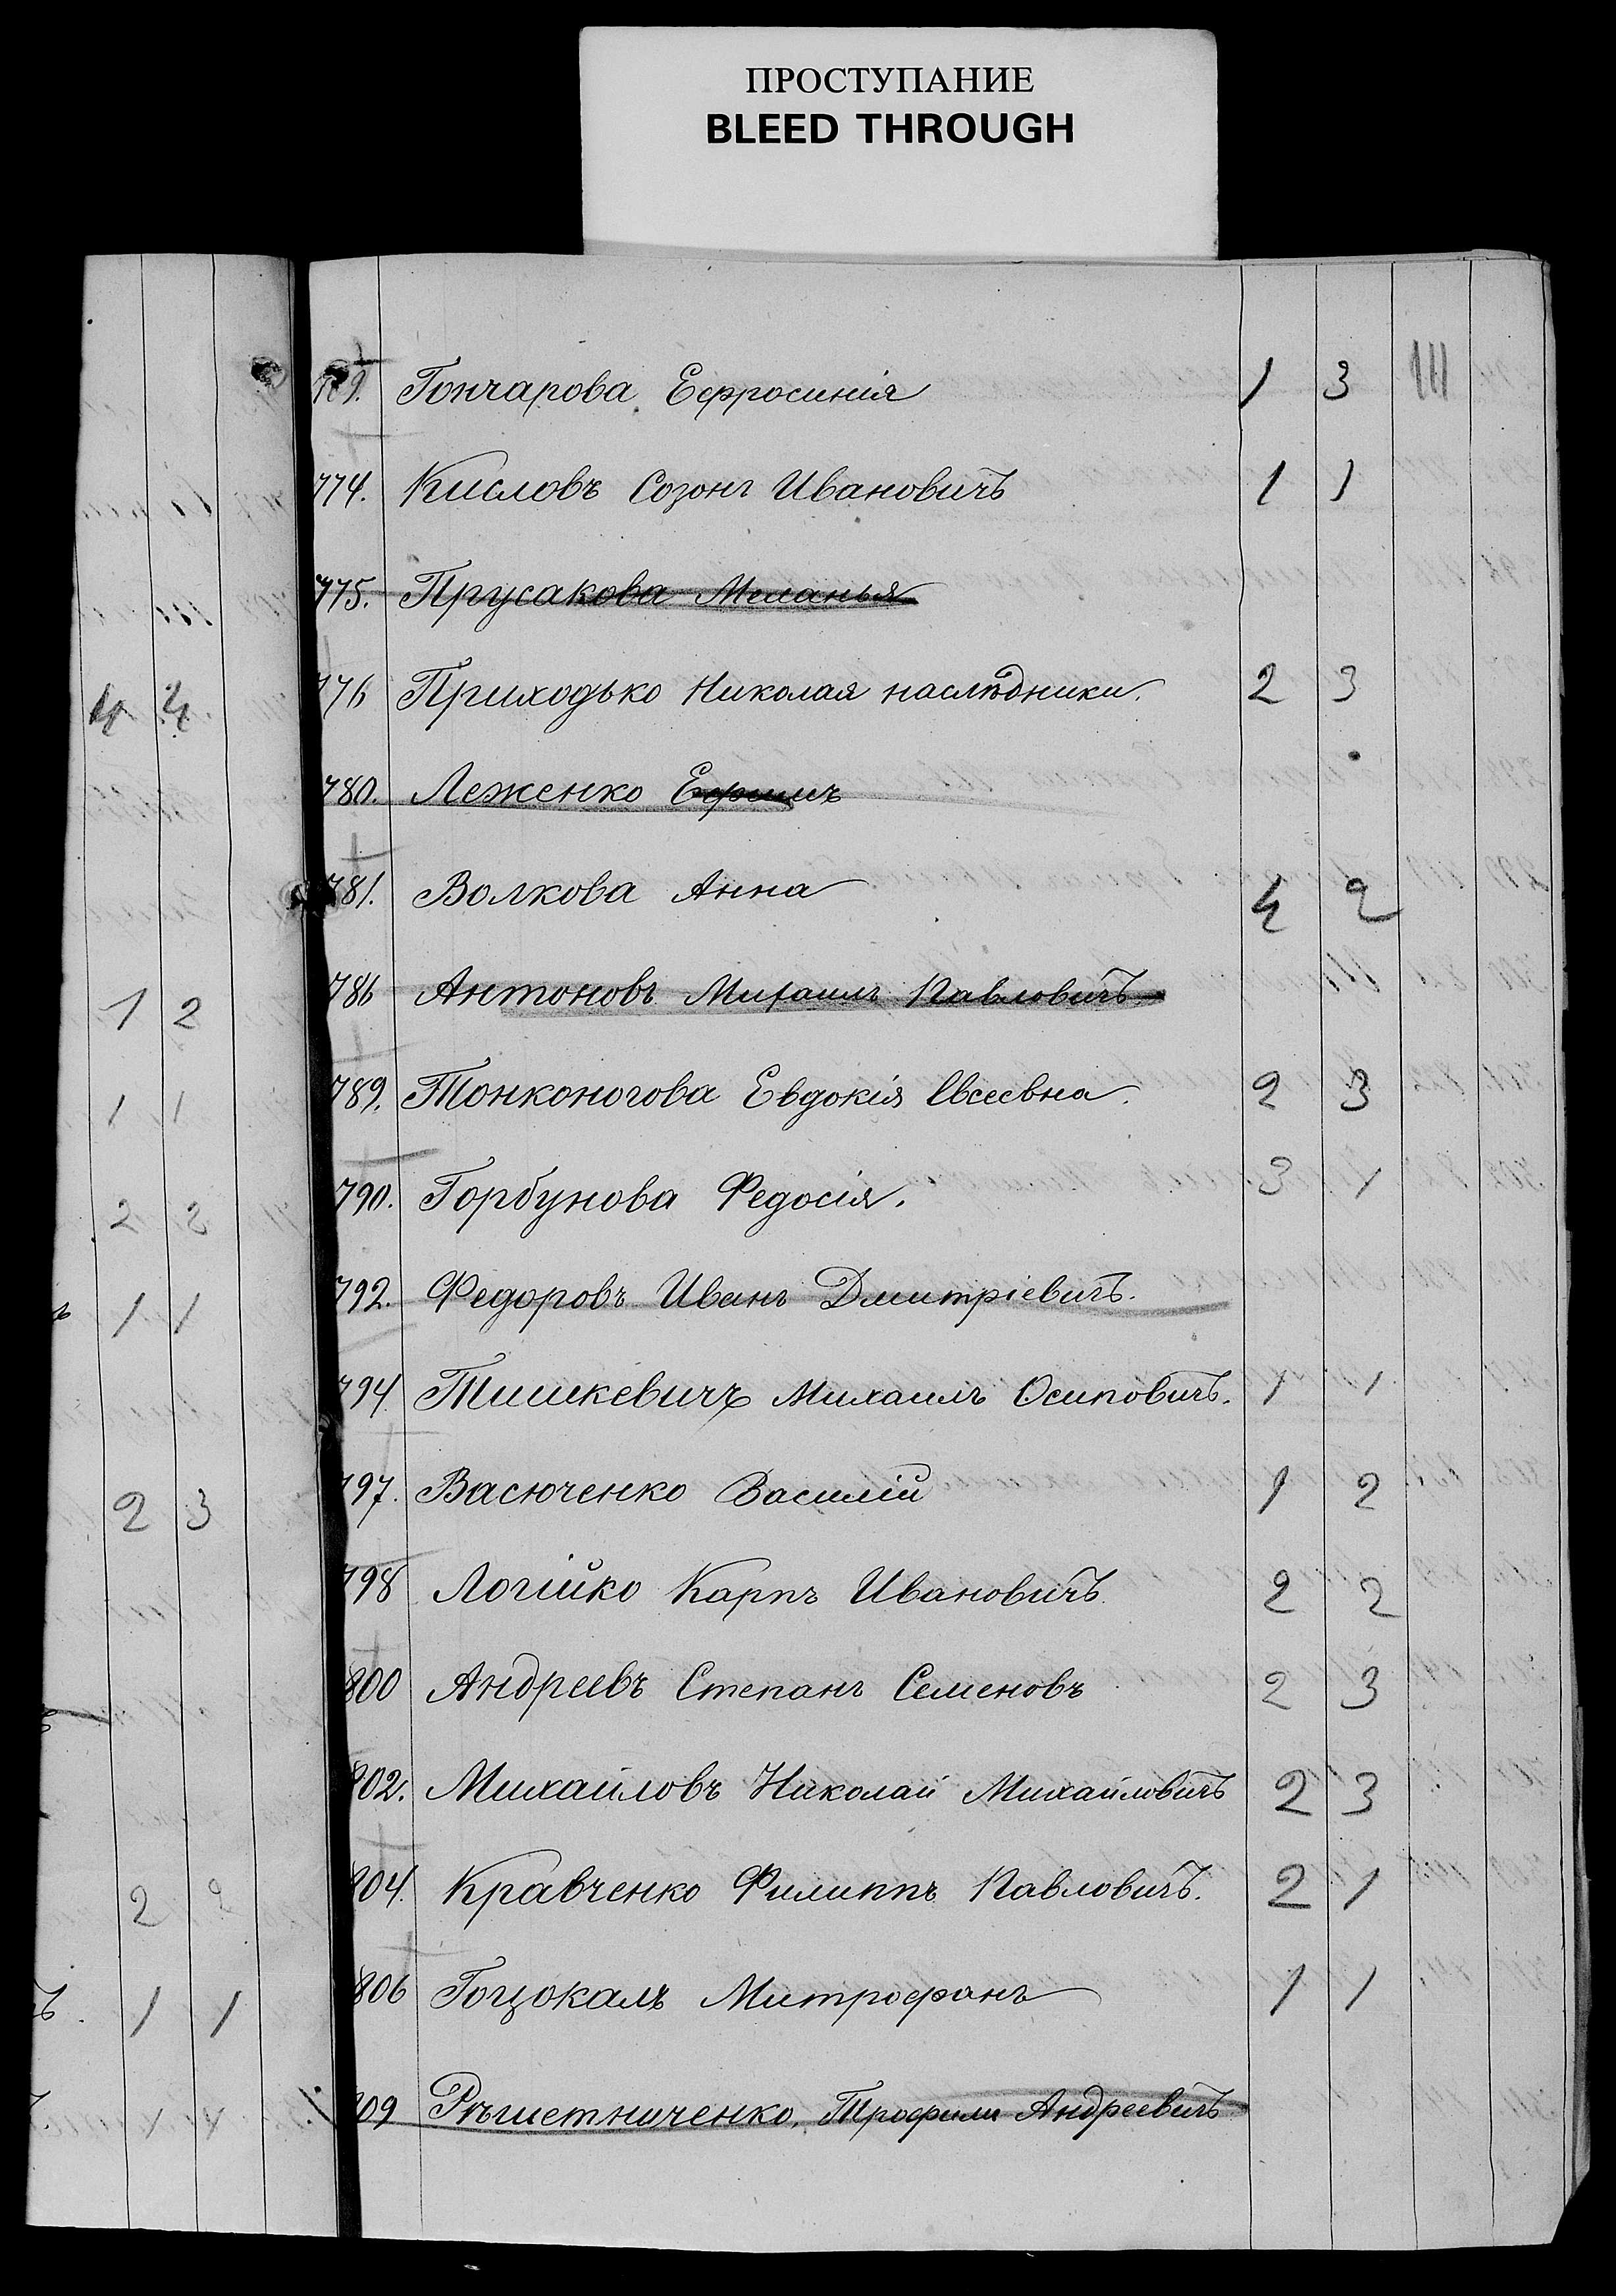 ПРОСТУПАНИЕ
BLEED THROUGH
769. Гончарова Ефросинія 1 3 III
774. Кисловъ Созонъ Ивановичъ 1 1
775. Прусакова Меланья
776 Приходько Николая наслѣдники. 2 3
780. Леженко Ефимъ
781. Волкова Анна 4 2
786 Антоновъ Михаилъ Павловичъ
789. Тонконогова Евдокія Евсеевна. 2 3
790. Горбунова Федосія. 3 1
792. Федоровъ Иванъ Дмитріевичъ.
794 Тишкевичъ Михаилъ Осиповичъ. 1 1
797. Васюченко Василій 1 2
798 Логійко Карпъ Ивановичъ 2 2
800 Андреевъ Степанъ Семеновъ 2 3
802. Михайловъ Николай Михайловичъ 2 3
804. Кравченко Филиппъ Павловичъ. 2 1
806 Гоцокалъ Митрофанъ 1 1
809 Рѣшетниченко, Трофимъ Андреевичъ
4 4
1 2
1 1
2 2
1 1
2 3
2 2
1 1